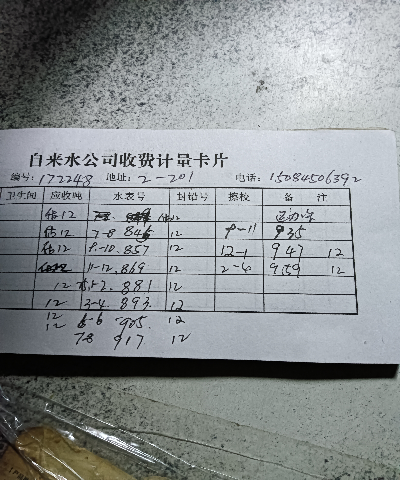 自来水公司收费计量卡片
编号: 172248 地址: 2-201 电话: 15084506392
卫生间 应收吨 水表号 封铅号 擦校 备 注
估12 估12
估12 7-8 845 12 9-11 935
估12 9-10 857 12 12-1 947 12
11-12 869 12 2-6 959 12
12 1-2 881 12
12 3-4 893 12
12
12 5-6 905 12
7-8 917 12